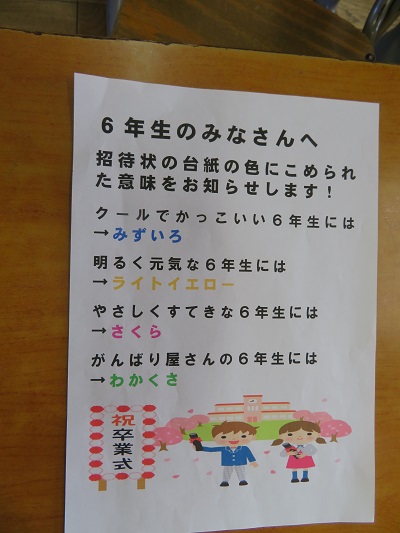 ６年生のみなさんへ
招待状の台紙の色にこめられ
た意味をお知らせします！
クールでかっこいい６年生には
→みずいろ
明るく元気な６年生には
→ライトイエロー
やさしくすてきな６年生には
→さくら
がんばり屋さんの６年生には
→わかくさ
祝卒業式